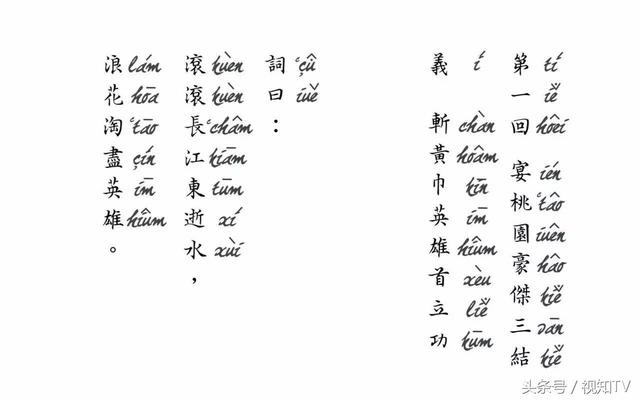 第一回 宴桃園豪傑三結
tí iĕ hôeí ién ‘tâo iûên hâo kiĕ sān kiĕ
義 斬黃巾英雄首立功
í chàn hôâm kīn īm hiûm xèu liĕ kūm
詞曰：
‘çû iuĕ
滾滾長江東逝水，
kuèn kuèn ‘châm kiām tūm xí xùi
浪花淘盡英雄。
lám hōa ‘tāo çín īm hiûm
头条号 / 视知TV